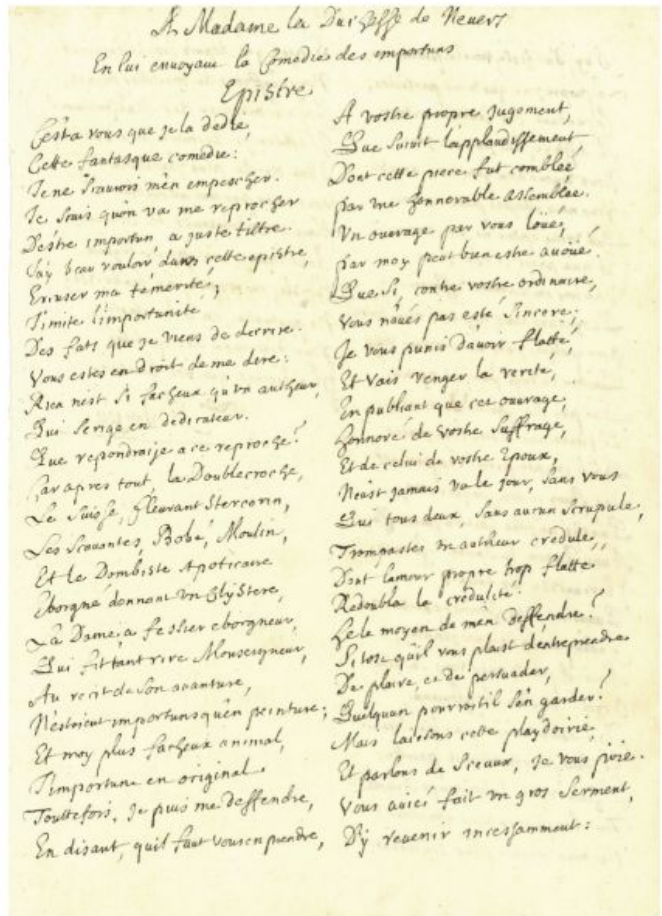 A Madame la Duchesse de Nevers
En lui envoyant la Comedie des importuns
Epistre
C'est a vous que je la dedie,
Cette fantasque comedie:
Je ne scaurois m'en empescher.
Je scais qu'on va me reprocher
D'estre importun, a juste tiltre.
J'ay beau vouloir dans cette epistre,
Excuser ma témerité;
J'imite l'importunité
Des fats que je viens de decrire.
Vous estes en droit de me dire:
Rien n'est si facheux qu'un autheur,
Qui s'erige en dedicateur.
Que repondrai je a ce reproche?
Car apres tout, la Doublecroche,
Le Suisse, fleurant Stercorin,
Les Scavantes, Bobé, Moulin,
Et le Dombiste Apoticaire
Eborgné donnant un Clÿstere,
La Dame, a fessier eborgneur,
Qui fit tant rire Monseigneur,
Au recit de son avanture,
N'estoient importuns qu'en peinture;
Et moy plus facheux animal,
J'importune en original.
Touttefois, je puis me deffendre,
En disant, qu'il faut vous en prendre,
A vostre propre jugement,
Que suivit l'applaudissement,
Dont cette piece fut comblée
Par une honnorable assemblée.
Un ouvrage par vous loüé,
Par moy peut bien estre avoüé.
Que si, contre vostre ordinaire,
Vous n'avés pas esté sincere;
Je vous punis d'avoir flatté,
Et vais venger la verité,
En publiant que cet ouvrage,
Honnoré de vostre suffrage,
Et de celui de vostre Epoux,
N'eust jamais vu le jour, sans vous
Qui tous deux, sans aucun scrupule,
Trompastes un autheur credule,
Dont l'amour propre trop flatté
Redoubla la credulité.
Hé le moyen de m'en deffendre?
Si tost qu'il vous plaist d'entreprendre
De plaire, et de persuader,
Quelqu'un pourroit il s'en garder?
Mais laissons cette playdoirie,
Et parlons de Sceaux, je vous prie.
Vous aviés fait un gros serment,
D'y revenir incessamment: